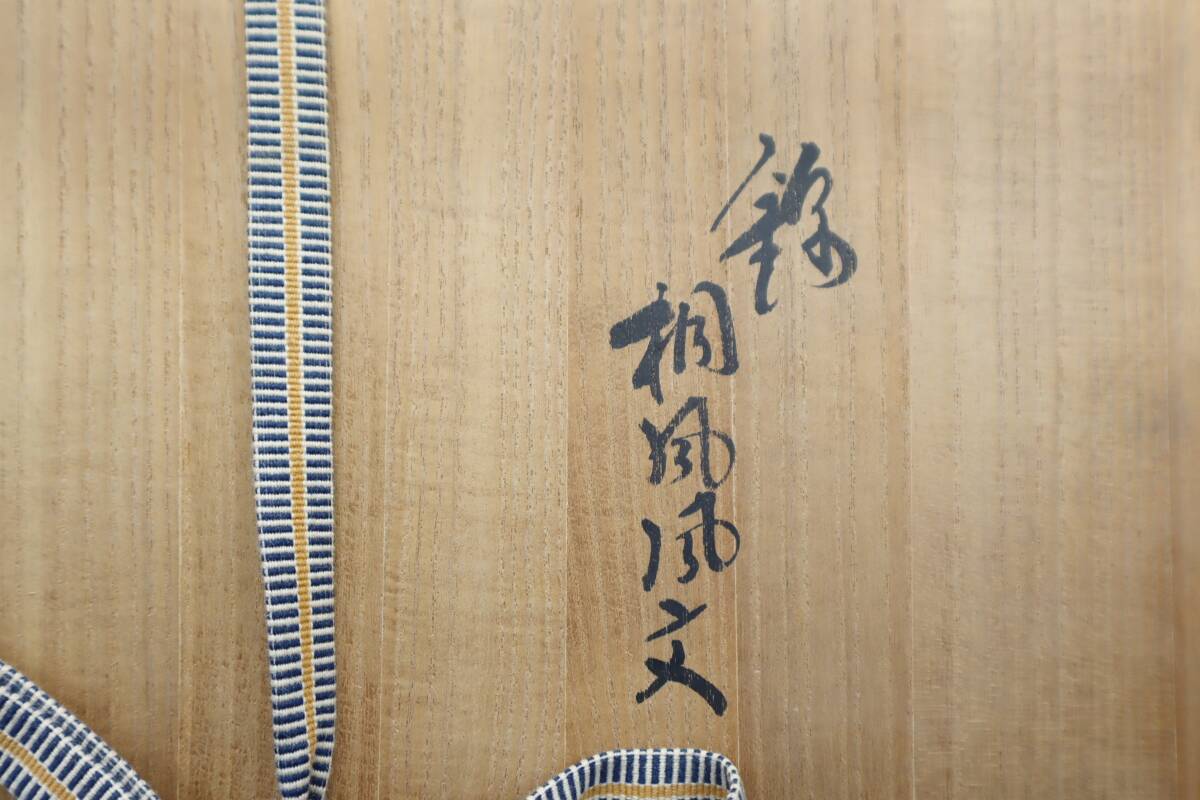 錦
桐鳳凰文